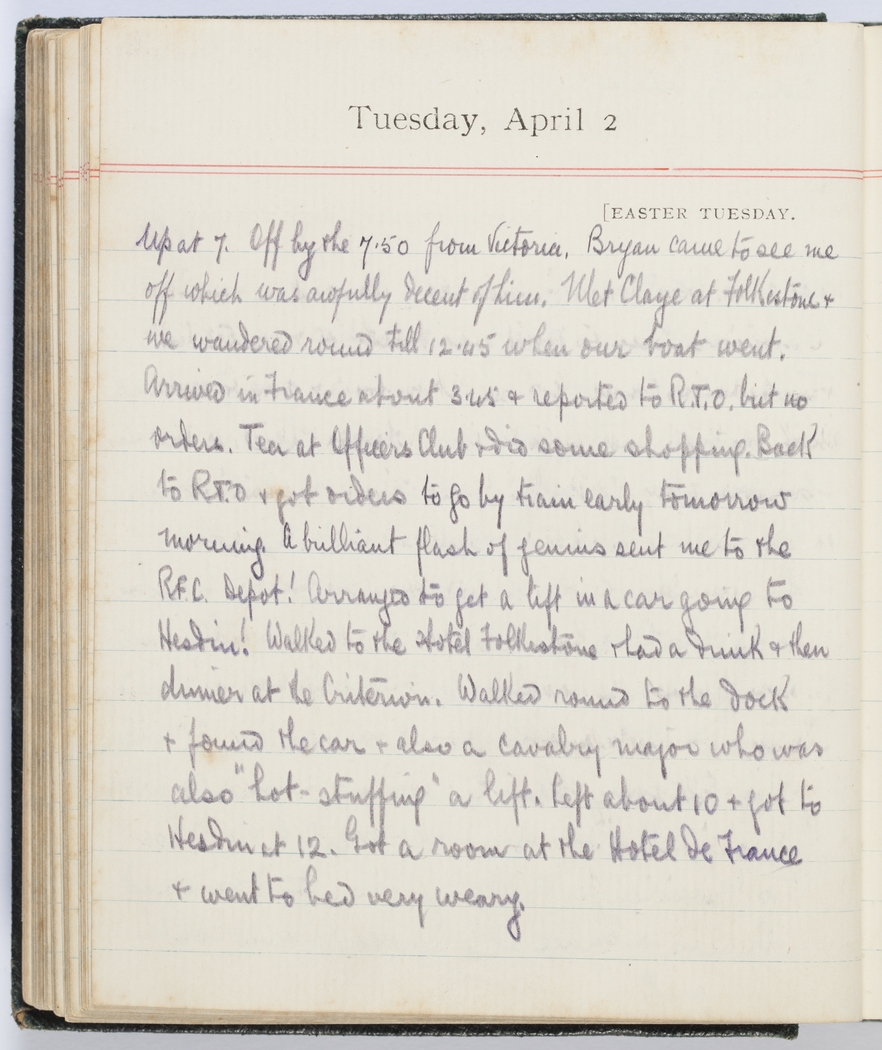 Tuesday, April 2
[EASTER TUESDAY.
Up at 7. Off by the 7.50 from Victoria. Bryan came to see me
off which was awfully decent of him. Met Claye at Folkestone +
we wandered round till 12.45 when our boat went.
Arrived in France about 3.45 & reported to R.T.O. but no
orders. Tea at Officers Club + did some shopping. Back
to R.T.O + got orders to go by train early tomorrow
morning. A brilliant flash of genius sent me to the
R.F.C. Depot! Arranged to get a lift in a car going to
Hesdin! Walked to the Hotel Folkestone + had a drink + then
dinner at the Criterion. Walked round to the dock
+ found the car + also a cavalry major who was
also "hot-stuffing" a lift. Left about 10 + got to
Hesdin at 12. Got a room at the Hotel de France
+ went to bed very weary.